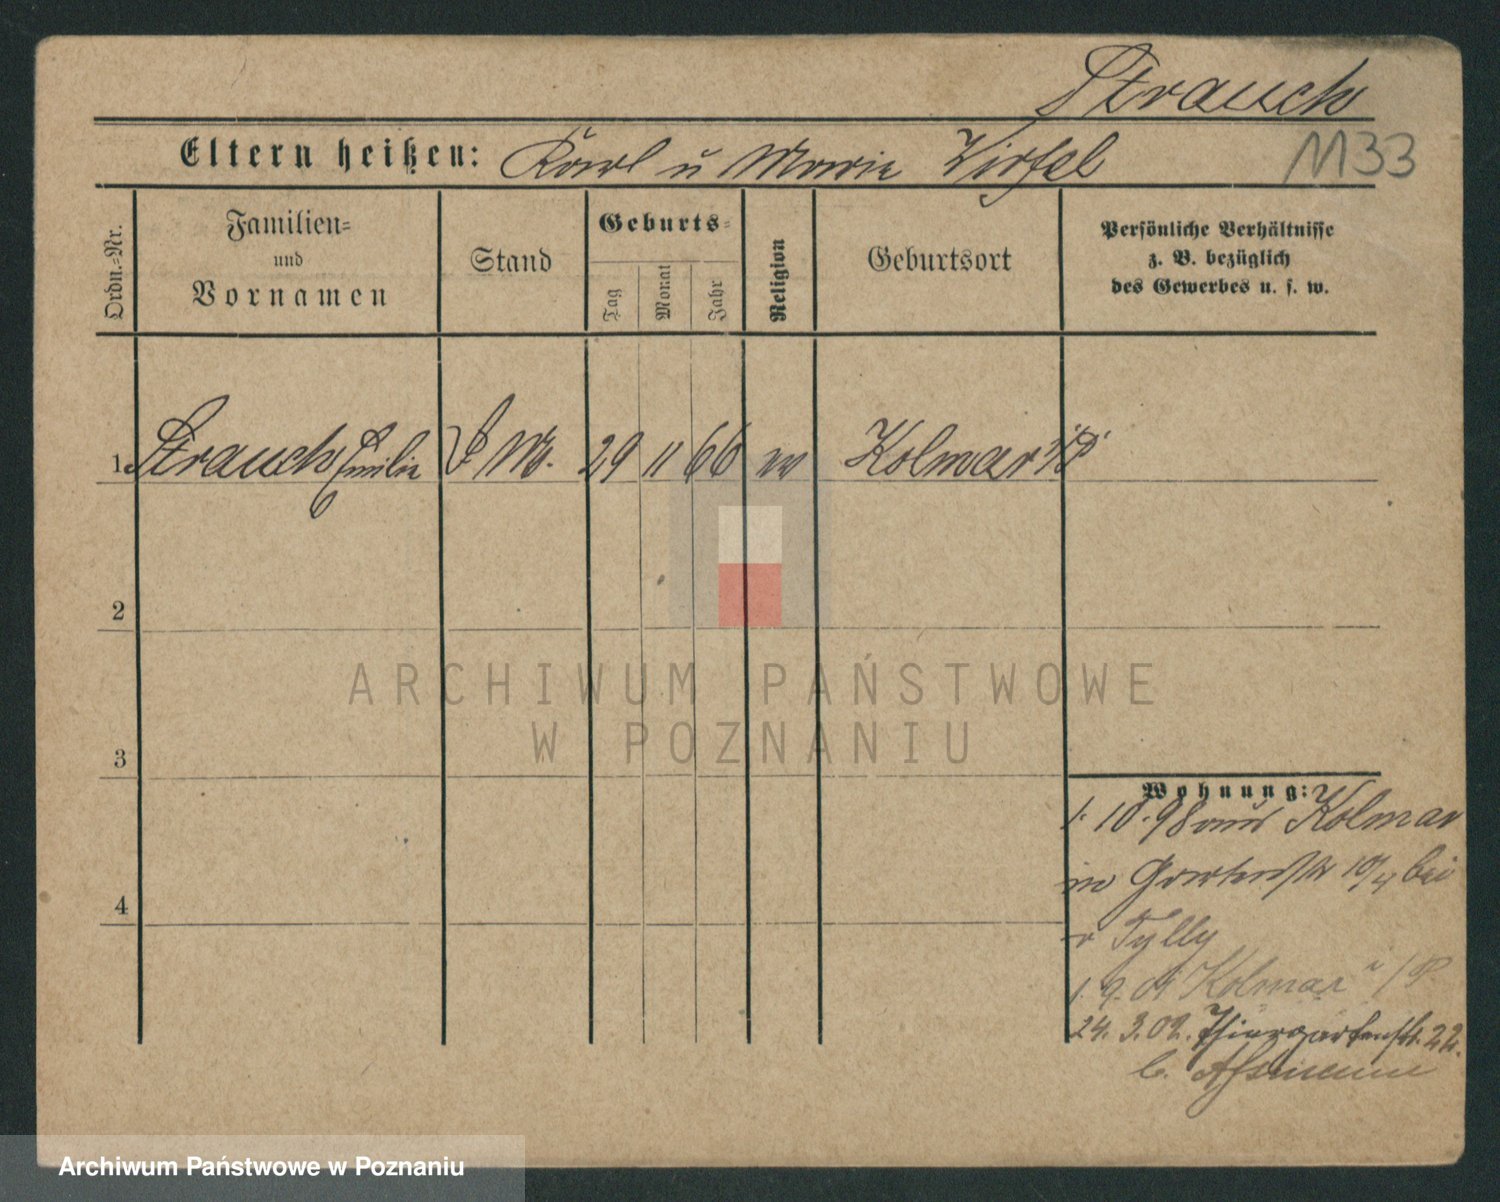 Strauch
Eltern heißen: Karl u Marie Wirfel
1133
Ordn.-Nr.
Familien-
und
Vornamen
Stand
Geburts-
Tag
Monat
Jahr
Religion
Geburtsort
Persönliche Verhältnisse
z. B. bezüglich
des Gewerbes u. s. w.
1. Strauch Emilie D. M. 29 11 66 ev Kolmar i/P
2
3
4
Wohnung:
1. 10. 98 aus Kolmar
in Gartenstr 10/4 bei
v Tylly
1. 9. 01 Kolmar i/P
24. 3. 02. Thiergartenstr. 22.
b. Assmann
ARCHIWUM PAŃSTWOWE
W POZNANIU
Archiwum Państwowe w Poznaniu